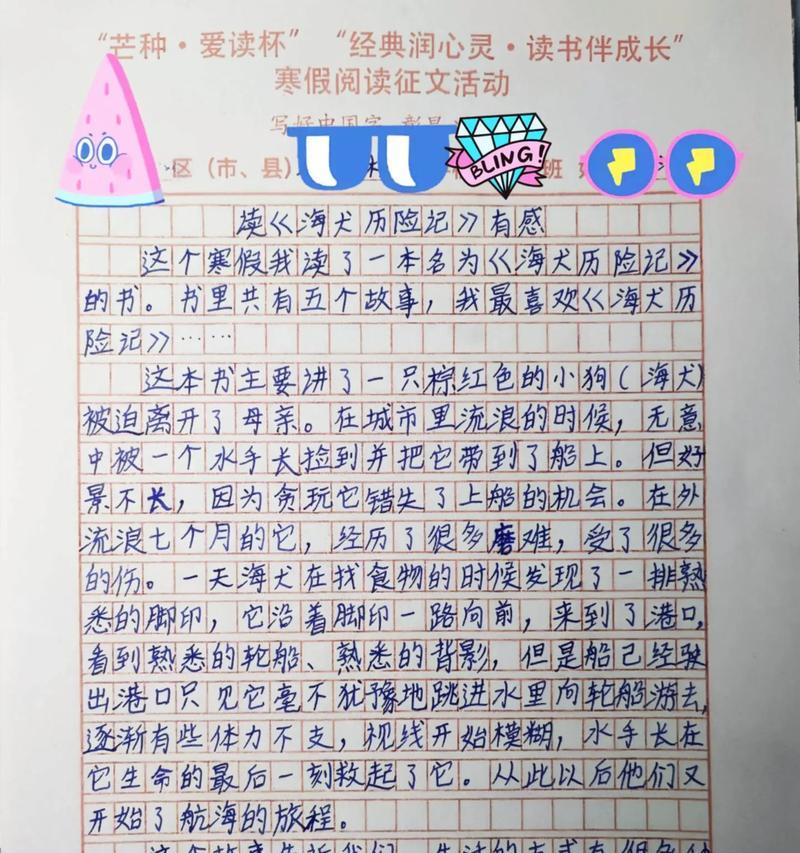 “芒种·爱读杯” “经典润心灵·读书伴成长”
寒假阅读征文活动
写好中国字
区(市、县)
BLING!
班
读《海犬历险记》有感
这个寒假我读了一本名为《海犬历险记》
的书。书里共有五个故事，我最喜欢《海犬历
险记》……
这本书主要讲了一只棕红色的小狗(海犬)
被迫离开了母亲。在城市里流浪的时候，无意
中被一个水手长捡到并把它带到了船上。但好
景不长，因为贪玩它错失了上船的机会。在外
流浪七个月的它，经历了很多磨难，受了很多
的伤。一天海犬在找食物的时候发现了一排熟
悉的脚印，它沿着脚印一路向前，来到了港口，
看到熟悉的轮船、熟悉的背影，但是船已经驶
出港口只见它毫不犹豫地跳进水里向轮船游去，
逐渐有些体力不支，视线开始模糊，水手长在
它生命的最后一刻救起了它。从此以后他们又
开始了航海的旅程。
这个故事告诉我们，生活的方式有很多种